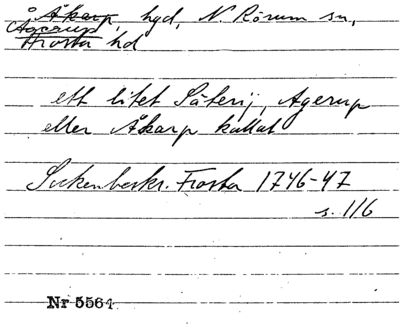 Åkarp, hgd, N. Rörum sn,
Agerup,
Frosta hd
ett litet Säterij, Agerup
eller Åkarp kallat
Sockenbeskr. Frosta 1746-47
s. 116
Nr 5564